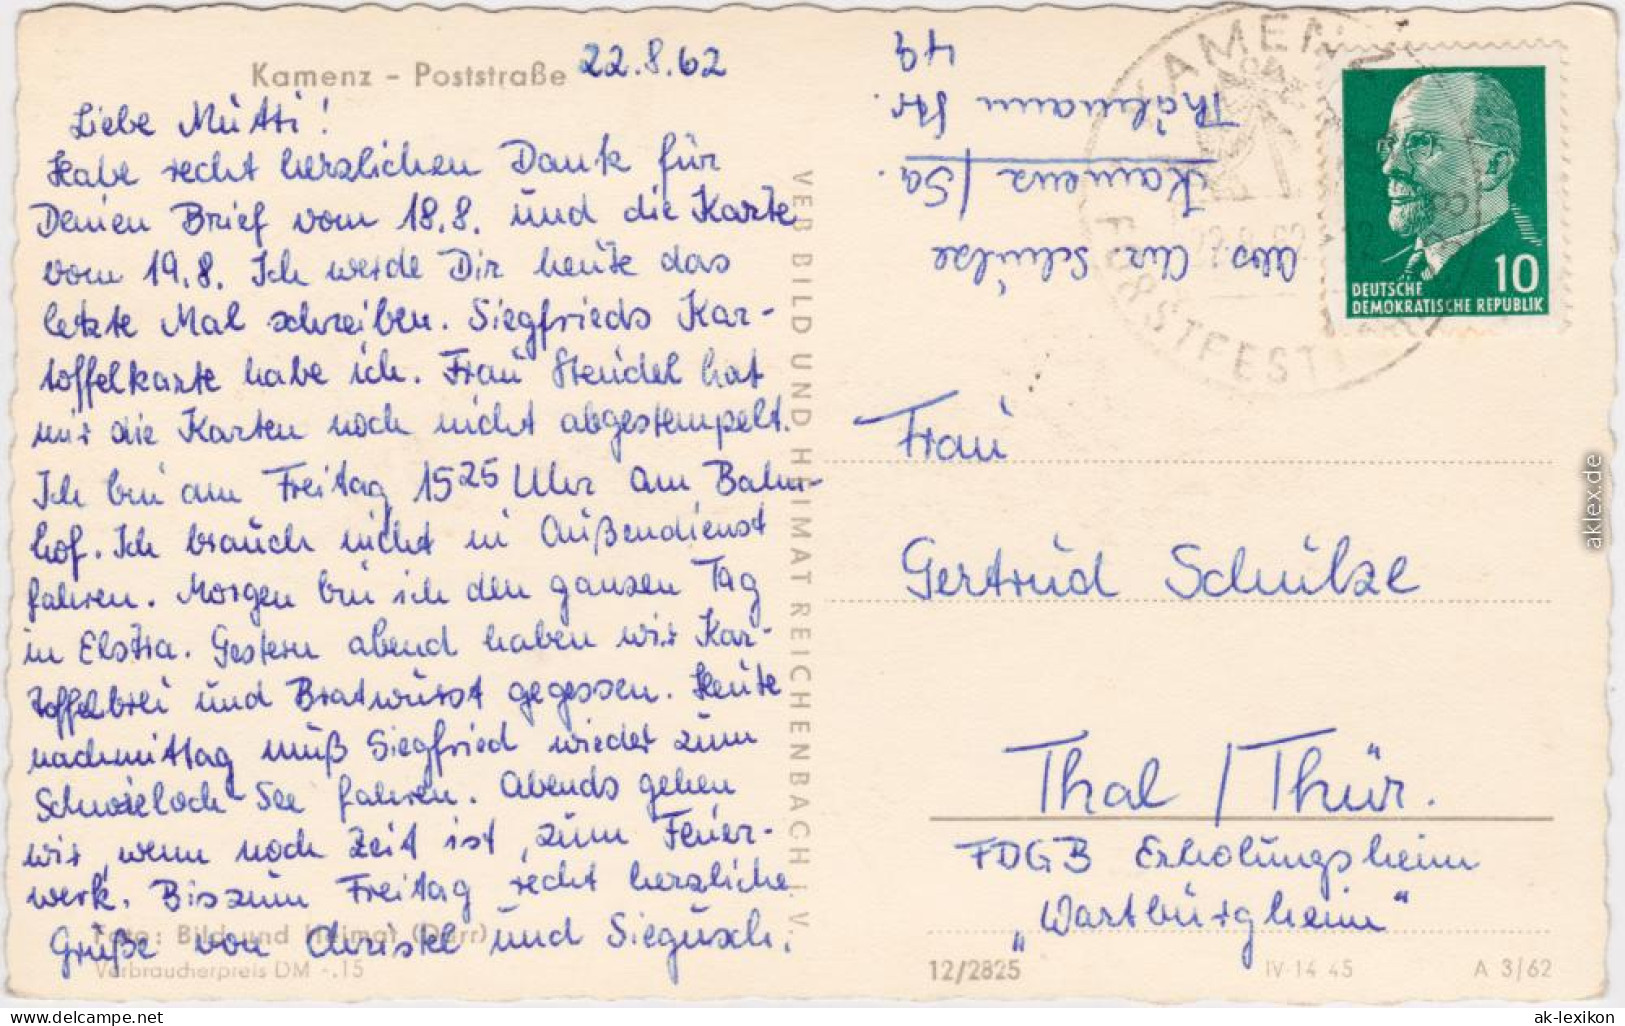 Kamenz - Poststraße 22.8.62
Liebe Mutti!
Habe recht herzlichen Dank für
Deinen Brief vom 18.8. und die Karte
vom 19.8. Ich werde Dir heute das
letzte Mal schreiben. Siegfrieds Kar-
toffelkarte habe ich. Frau Steudel hat
mir die Karten noch nicht abgestempelt.
Ich bin am Freitag 15 25 Uhr am Bahn-
hof. Ich brauch nicht in Außendienst
fahren. Morgen bin ich den ganzen Tag
in Elstra. Gestern abend haben wir Kar-
toffelbrei und Bratwurst gegessen. Heute
nachmittag muß Siegfried wieder zum
Schwieloch See fahren. Abends gehen
wir, wenn noch Zeit ist, zum Feuer-
werk. Bis zum Freitag recht herzliche
Grüße von Christel und Siegusch.
Foto: Bild und Heimat (Darr)
Verbraucherpreis DM -.15
VEB BILD UND HEIMAT REICHENBACH I. V.
Abs. Chr. Schulze
Kamenz/Sa.
Thälmann Str.
49
KAMENZ
22.8.62-12
FORSTFEST
10
DEUTSCHE
DEMOKRATISCHE REPUBLIK
Frau
Gertrud Schulze
Thal/Thür.
FDGB Erholungsheim
"Wartburgheim"
12/2825 IV-14-45 A 3/62
aklex.de
www.delcampe.net
ak-lexikon